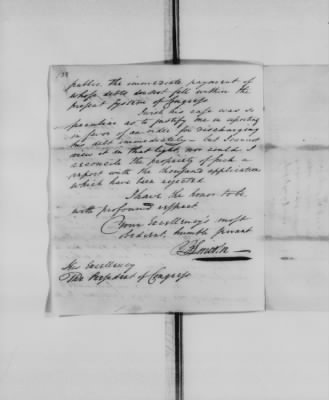 public the immediate payment of
whose debts do not fall within the
present System of Congress
I wish his case was so
peculiar as to justify me in reporting
in favor of an order for discharging
his debt immediately – but I cannot
view it in that light, nor could I
reconcile the propriety of such a
report with the thousand applications
which have been rejected.
I have the honor to be
with profound respect
Your Excellency's most
obedient, humble servant
B Lincoln
His Excellency
The President of Congress